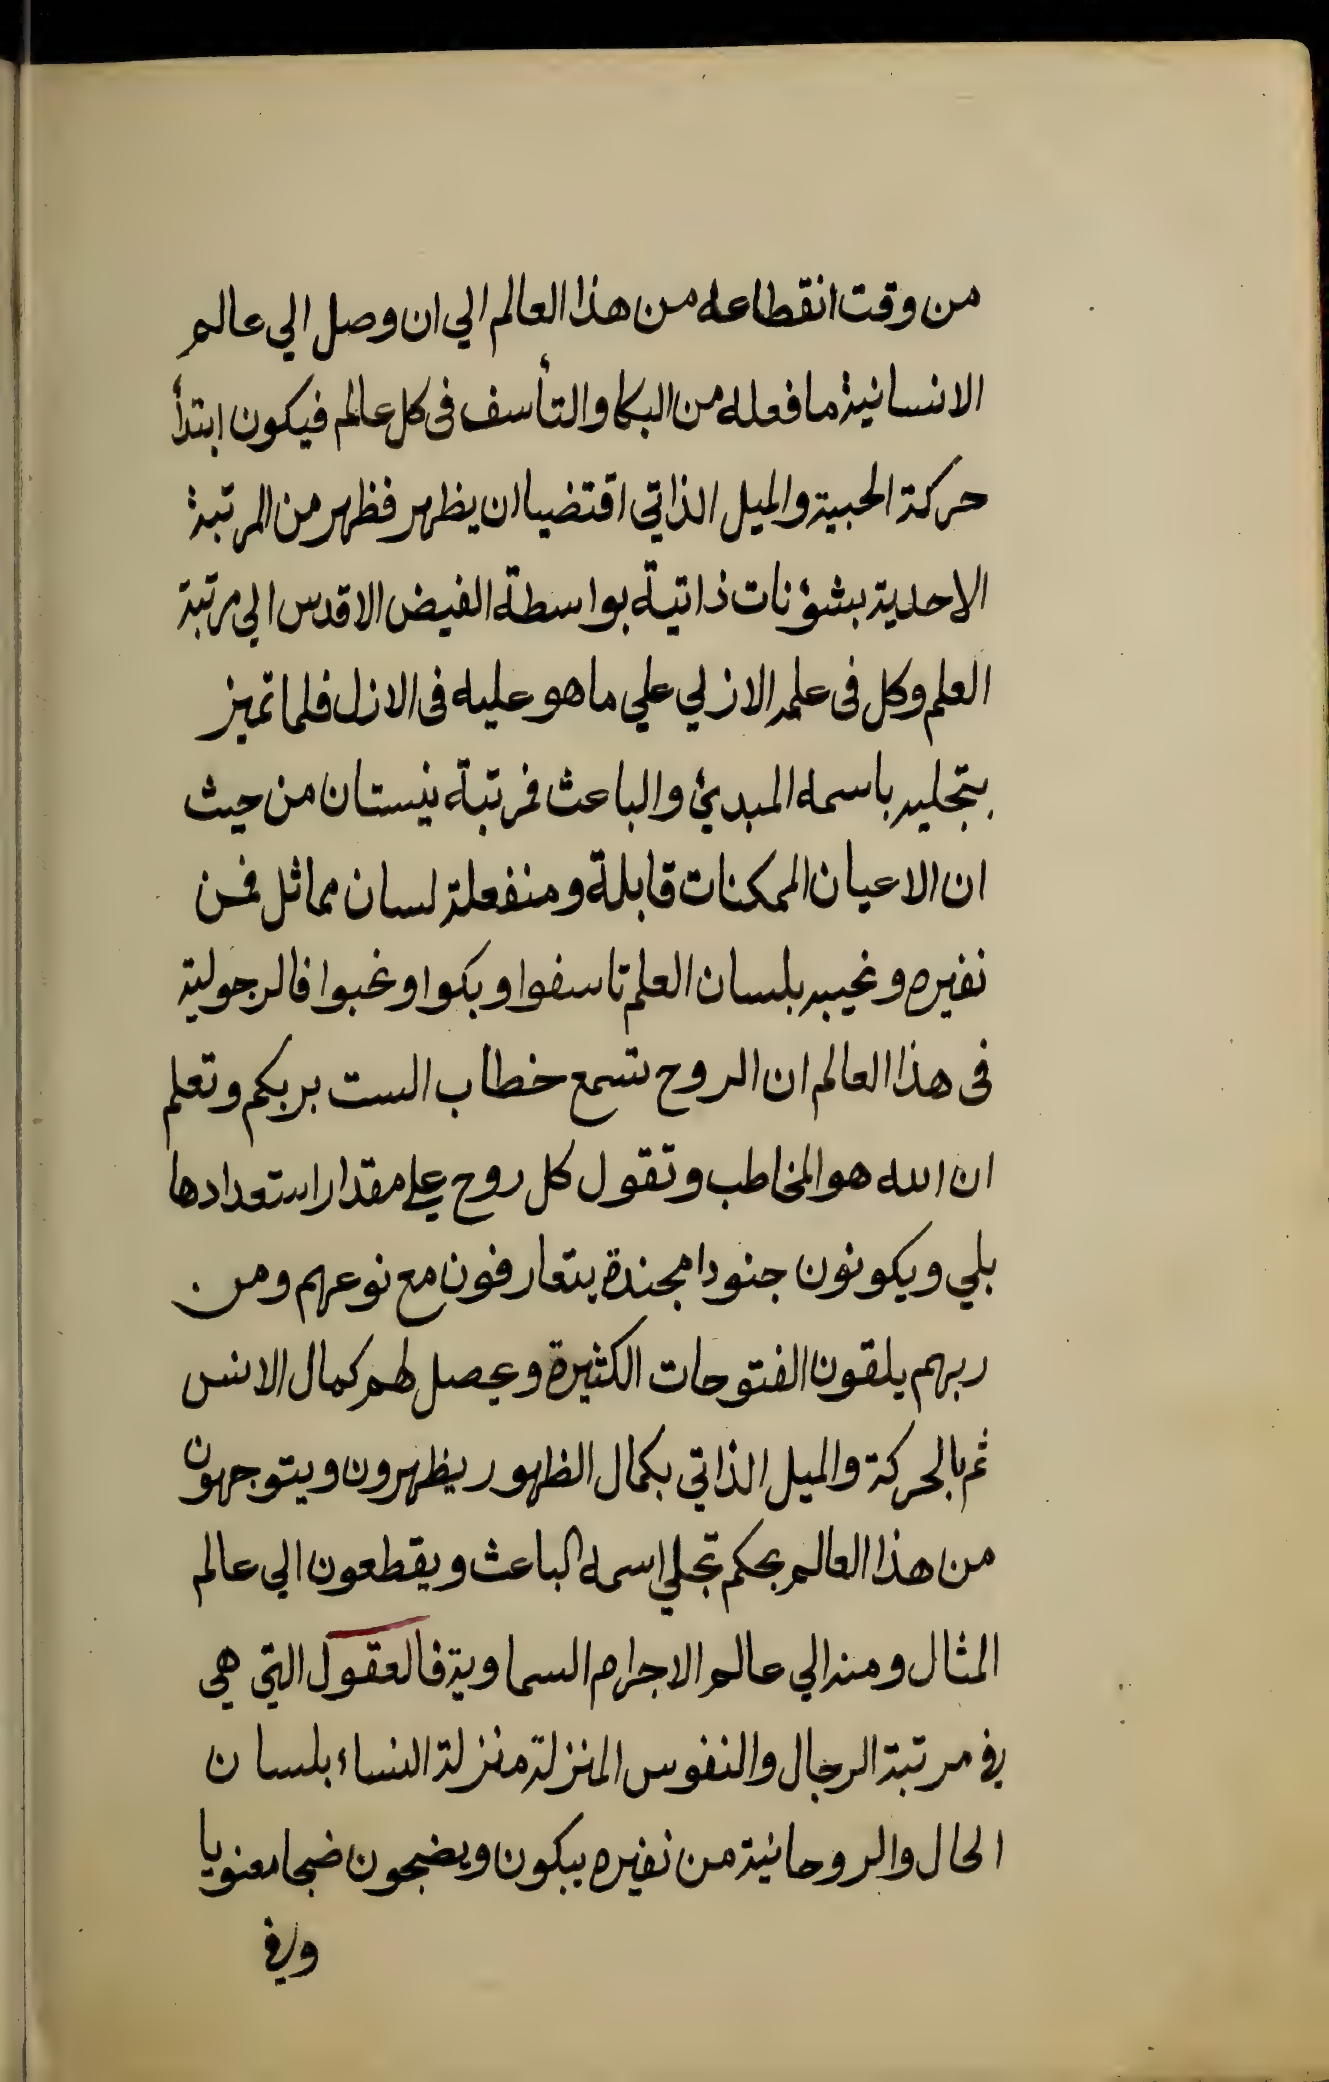 من وقت انقطاعه من هذا العالم الي ان وصل الي عالم
الانسانية ما فعله من البكا والتأسف فى كل عالم فيكون ابتدأ
حركة الحبية والميل الذاتي اقتضيا ان يظهر فظهر من المرتبة
الاحدية بشؤنات ذاتية بواسطة الفيض الاقدس الي مرتبة
العلم وكل فى علمه الازلي علي ما هو عليه فى الازل فلما تميز
بتجليه باسمه المبدئ والباعث فمرتبة نيستان من حيث
ان الاعيان الممكنات قابلة ومنفعلة لسان مماثل فمن
نفيره ونحيبه بلسان العلم تاسفوا وبكوا ونحبوا فالرجولية
فى هذا العالم ان الروح تسمع خطاب الست بربكم وتعلم
ان الله هو المخاطب وتقول كل روح علي مقدار استعدادها
بلي ويكونون جنودا مجندة يتعارفون مع نوعهم ومن
ربهم يلقون الفتوحات الكثيرة ويحصل لهم كمال الانس
ثم بالحركة والميل الذاتي بكمال الظهور يظهرون ويتوجهون
من هذا العالم بحكم تجلي اسمه الباعث ويقطعون الي عالم
المثال ومنه الي عالم الاجرام السماوية فالعقول التي هي
في مرتبة الرجال والنفوس المنزلة منزلة النساء بلسان
الحال والروحانية من نفيره يبكون ويضجون ضجا معنويا
وفي